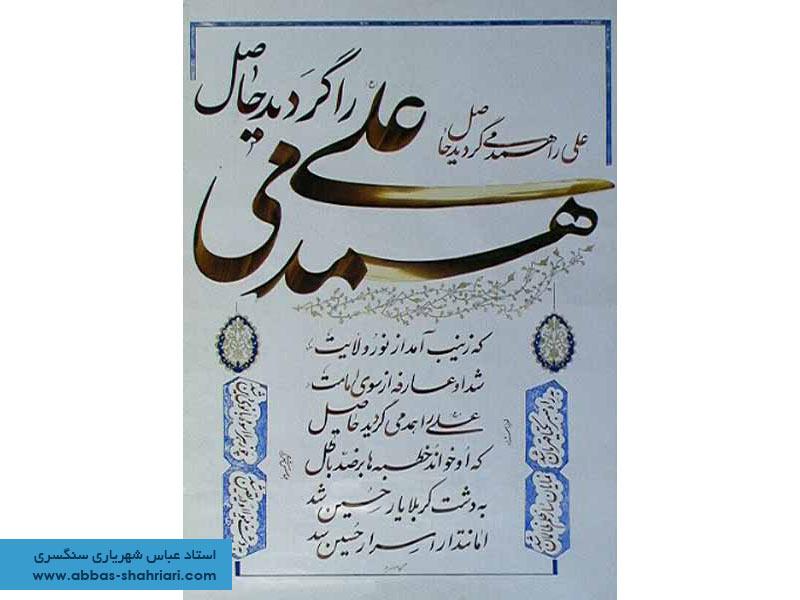 علی را همدمی گردید حاصل
علی را گردید حاصل
همدمی
که زینب آمد از نور ولایت
شد او عارفه از سوی امامت
علی را همدمی گردید حاصل
که او خواند خطبه ها بر ضد باطل
به دشت کربلا یار حسین شد
امانتدار اسرار حسین شد
استاد عباس شهریاری سنگسری
www.abbas-shahriari.com